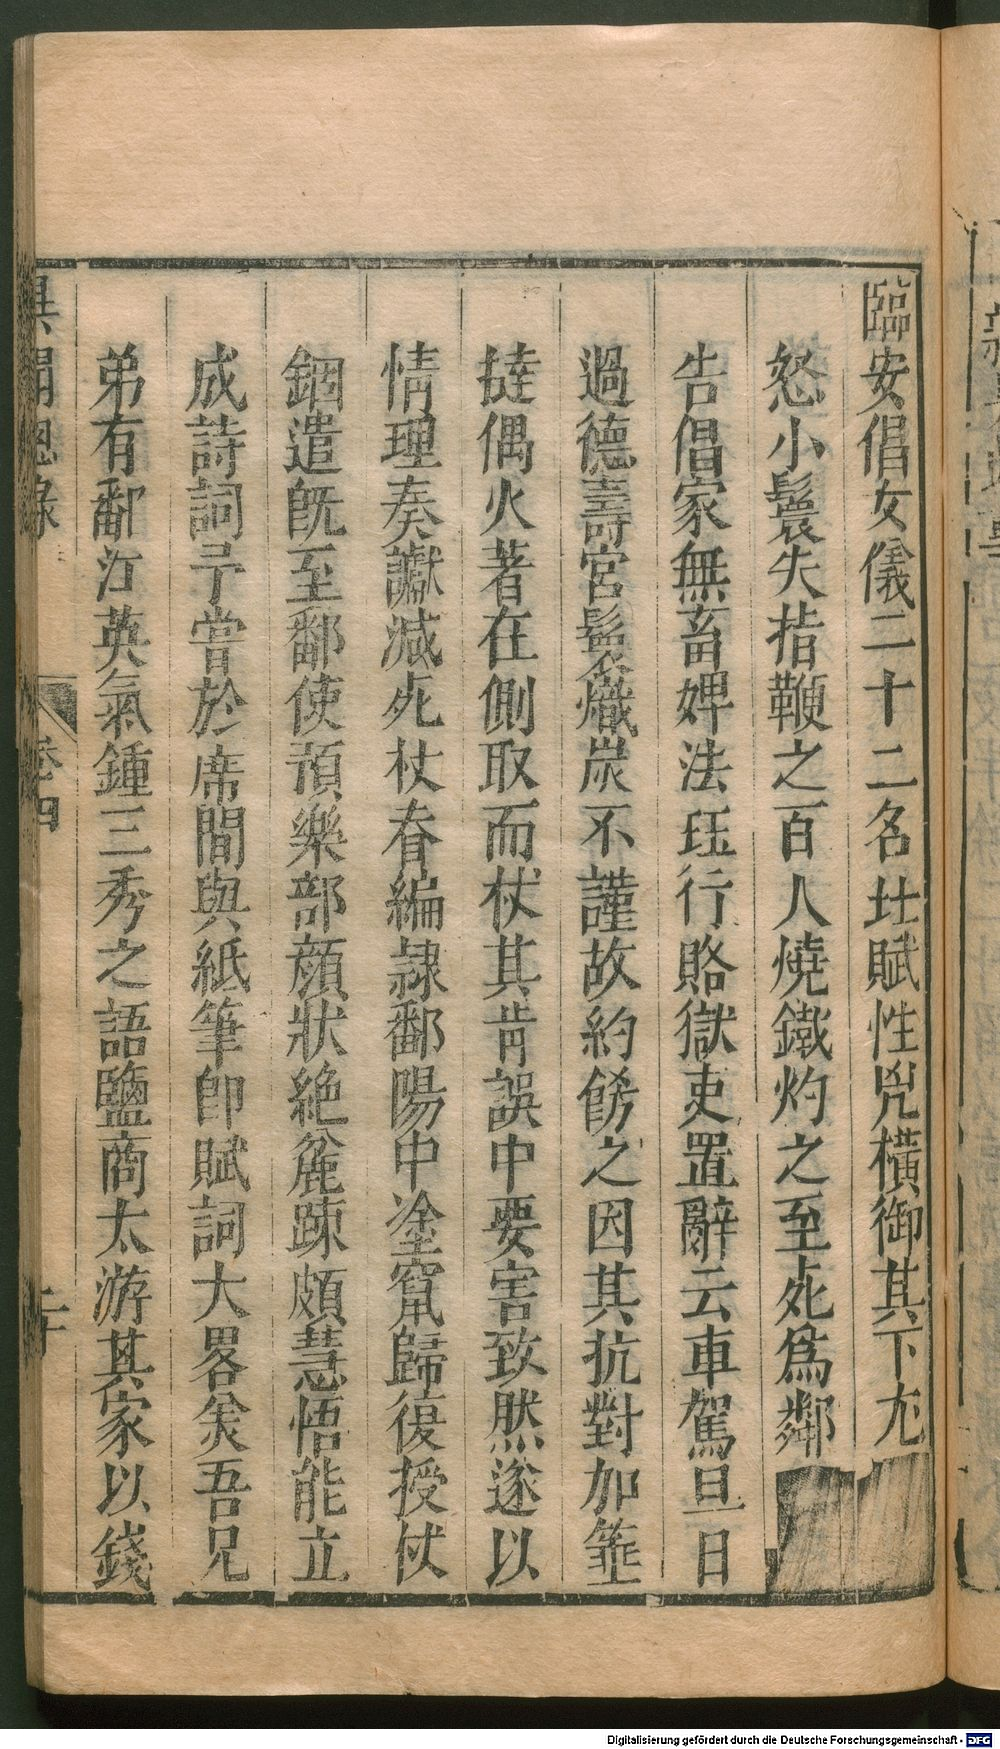 臨安倡女儀二十二名㚢賦性兇橫御其下尤
怒小鬟失指鞭之百人燒鐵灼之至死爲鄰
告倡家無畜婢法珏行賂獄吏置辭云車駕旦日
過德壽宮䰅𤆬熾炭不謹故約飭之因其抗對加箠
撻偶火著在側取而杖其背誤中要害致然遂以
情理奏讞减死杖脊編隸鄱陽中塗竄歸復授仗
錮遣旣至鄱使預樂部顔狀絶麄踈頗慧悟能立
成詩詞予嘗於席間與紙筆卽賦詞大畧矣吾兄
弟有鄱江英氣鍾三秀之語鹽商太游其家以錢
異聞總錄
卷四
二十
Digitalisierung gefördert durch die Deutsche Forschungsgemeinschaft - DFG